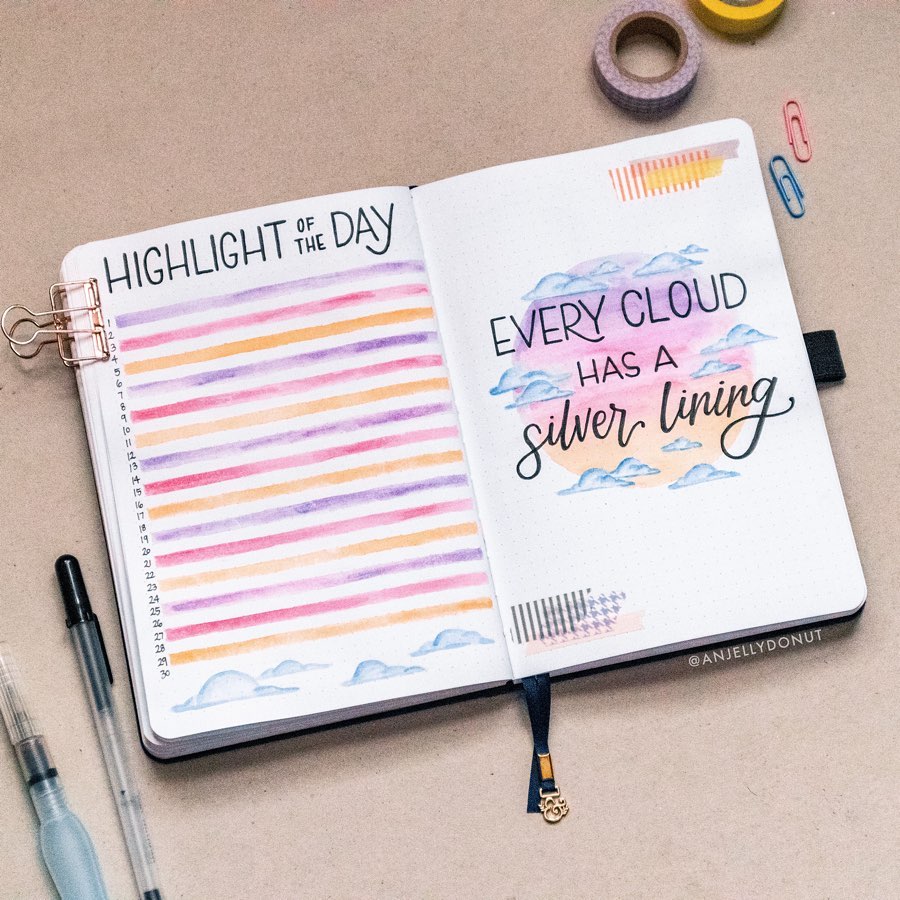 HIGHLIGHT OF THE DAY
1
2
3
4
5
6
7
8
9
10
11
12
13
14
15
16
17
18
19
20
21
22
23
24
25
26
27
28
29
30
EVERY CLOUD
HAS A
silver lining
@ANJELLYDONUT